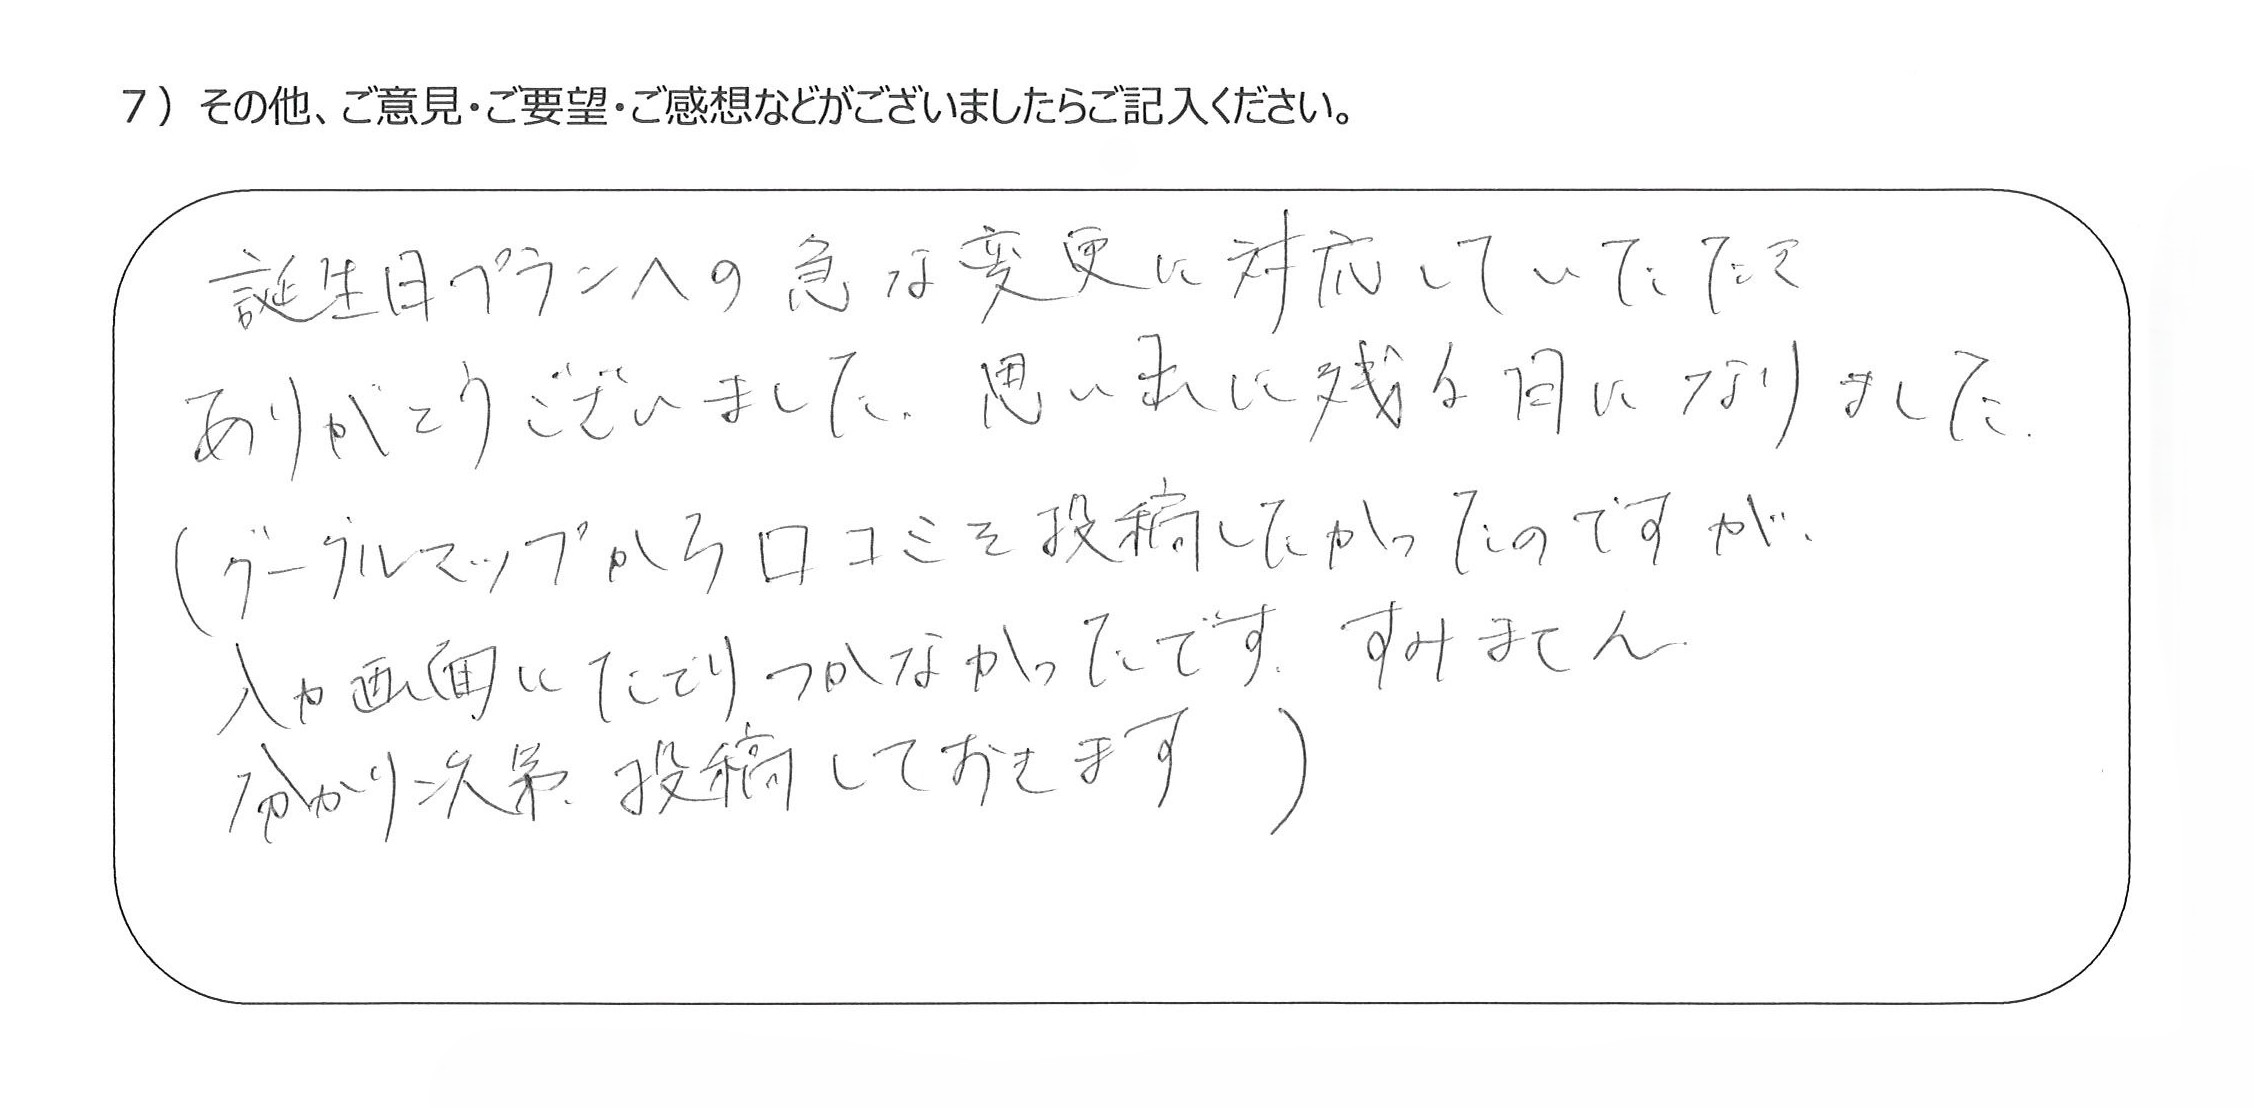 7）その他、ご意見・ご要望・ご感想などがございましたらご記入ください。
誕生日プランへの急な変更に対応していただき
ありがとうございました。思い出に残る日になりました。
(グーグルマップから口コミを投稿したかったのですが、
入力画面にたどりつかなかったです。すみません
分かり次第、投稿しておきます)